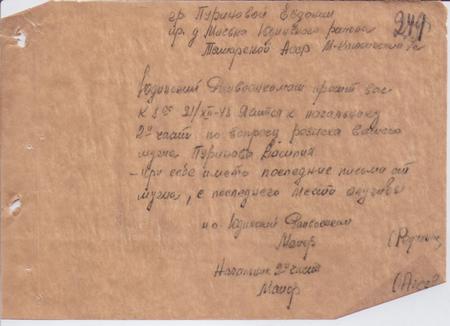 гр Пуриновой Евдокии
249
пр. д Мисека Юдинского района
Татарской Асср
Юдинский Райвоенкомат просит вас
к 8 00 31/XII-45 явится к начальнику
2ой части по вопросу розыска вашего
мужа Пуринова Василия
- при себе иметь последние письма от
мужа, с последнего места службы
Юдинский Райвоенком
Майор
Начальник 2ой части
Майор